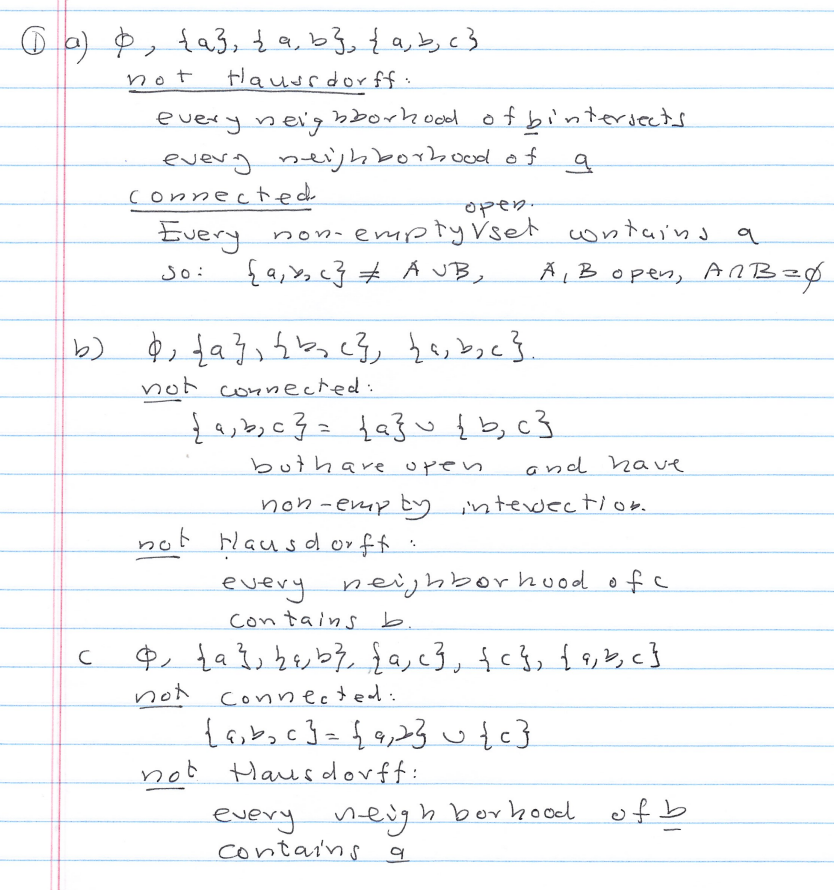 ① a) ϕ, {a}, {a, b}, {a, b, c}
not Haussdorff:
every neighborhood of b intersects
every neighborhood of a
connected
open.
Every non-empty ∨ set contains a
so: {a, b, c} ≠ A ∪ B, A, B open, A ∩ B = ϕ
b) ϕ, {a}, {b, c}, {a, b, c}.
not connected:
{a, b, c} = {a} ∪ {b, c}
both are open and have
non-empty intersection.
not Hausdorff:
every neighborhood of c
contains b.
c ϕ, {a}, {a, b}, {a, c}, {c}, {a, b, c}
not connected:
{a, b, c} = {a, b} ∪ {c}
not Hausdorff:
every neighborhood of b
contains a